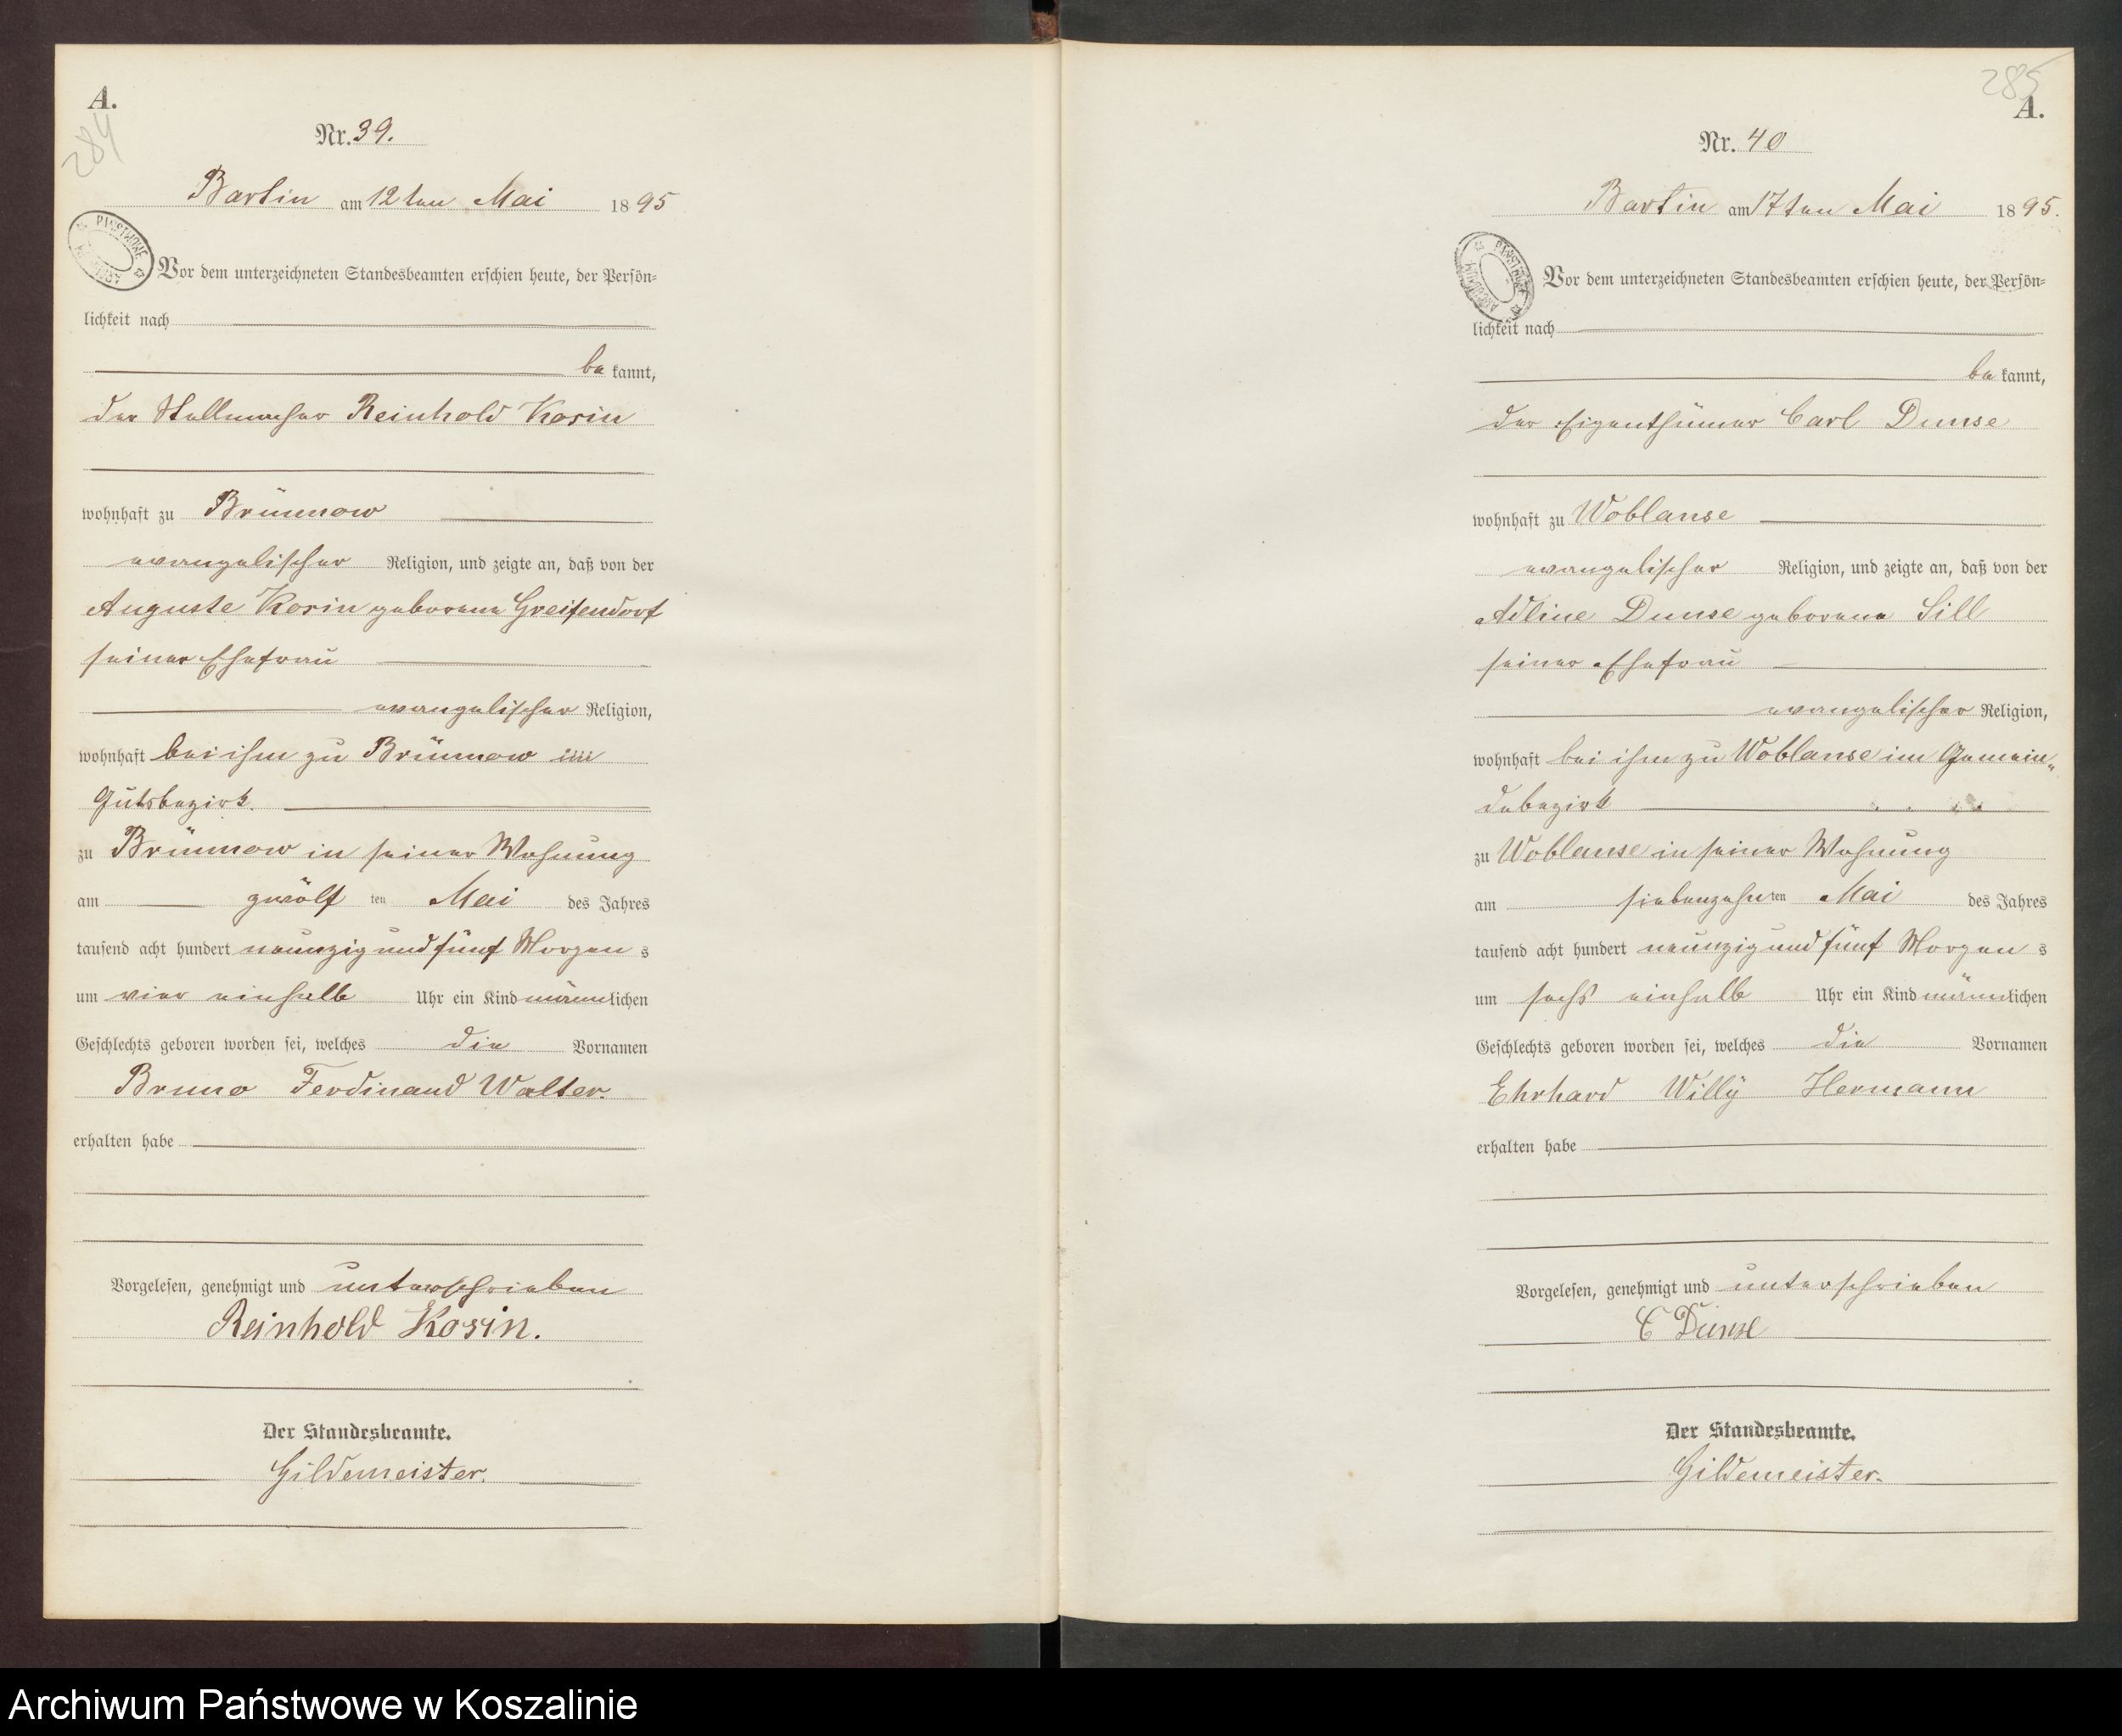 A.
284
Nr. 39.
Bartin am 12ten Mai 1895
Vor dem unterzeichneten Standesbeamten erschien heute, der Persön-
lichkeit nach
be kannt,
der Stellmacher Reinhold Kosin
wohnhaft zu Brünnow
evangelischer Religion, und zeigte an, daß von der
Auguste Kosin geborene Greifendorf
seiner Ehefrau
evangelischer Religion,
wohnhaft bei ihm zu Brünnow im
Gutsbezirk.
zu Brünnow in seiner Wohnung
am zwölf ten Mai des Jahres
tausend acht hundert neunzig und fünf Morgen s
um vier einhalb Uhr ein Kind männlichen
Geschlechts geboren worden sei, welches die Vornamen
Bruno Ferdinand Walter.
erhalten habe
Vorgelesen, genehmigt und unterschrieben
Reinhold Kosin.
Der Standesbeamte.
Gildemeister.
285
A.
Nr. 40
Bartin am 17ten Mai 1895.
Vor dem unterzeichneten Standesbeamten erschien heute, der Persön-
lichkeit nach
be kannt,
der Eigenthümer Carl Dunse
wohnhaft zu Woblanse
evangelischer Religion, und zeigte an, daß von der
Adline Dunse geborene Sill
seiner Ehefrau
evangelischer Religion,
wohnhaft bei ihm zu Woblanse im Gemein-
debezirk
zu Woblanse in seiner Wohnung
am siebenzehn ten Mai des Jahres
tausend acht hundert neunzig und fünf Morgen s
um sechs einhalb Uhr ein Kind männlichen
Geschlechts geboren worden sei, welches die Vornamen
Ehrhard Willÿ Hermann
erhalten habe
Vorgelesen, genehmigt und unterschrieben
C Dunse
Der Standesbeamte.
Gildemeister.
Archiwum Państwowe w Koszalinie